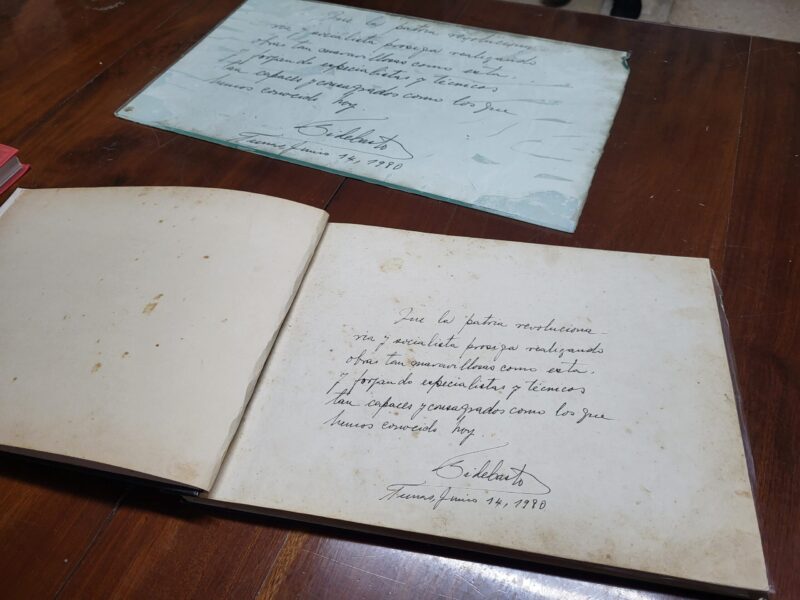 Que la patria revoluciona-
ria y socialista prosiga realizando
obras tan maravillosas como esta,
y forjando especialistas y técnicos
tan capaces y consagrados como los que
hemos conocido hoy
Fidel Castro
Tunas, Junio 14, 1980
Que la patria revoluciona-
ria y socialista prosiga realizando
obras tan maravillosas como esta.
y forjando especialistas y técnicos
tan capaces y consagrados como los que
hemos conocido hoy.
Fidel Castro
Tunas, Junio 14, 1980